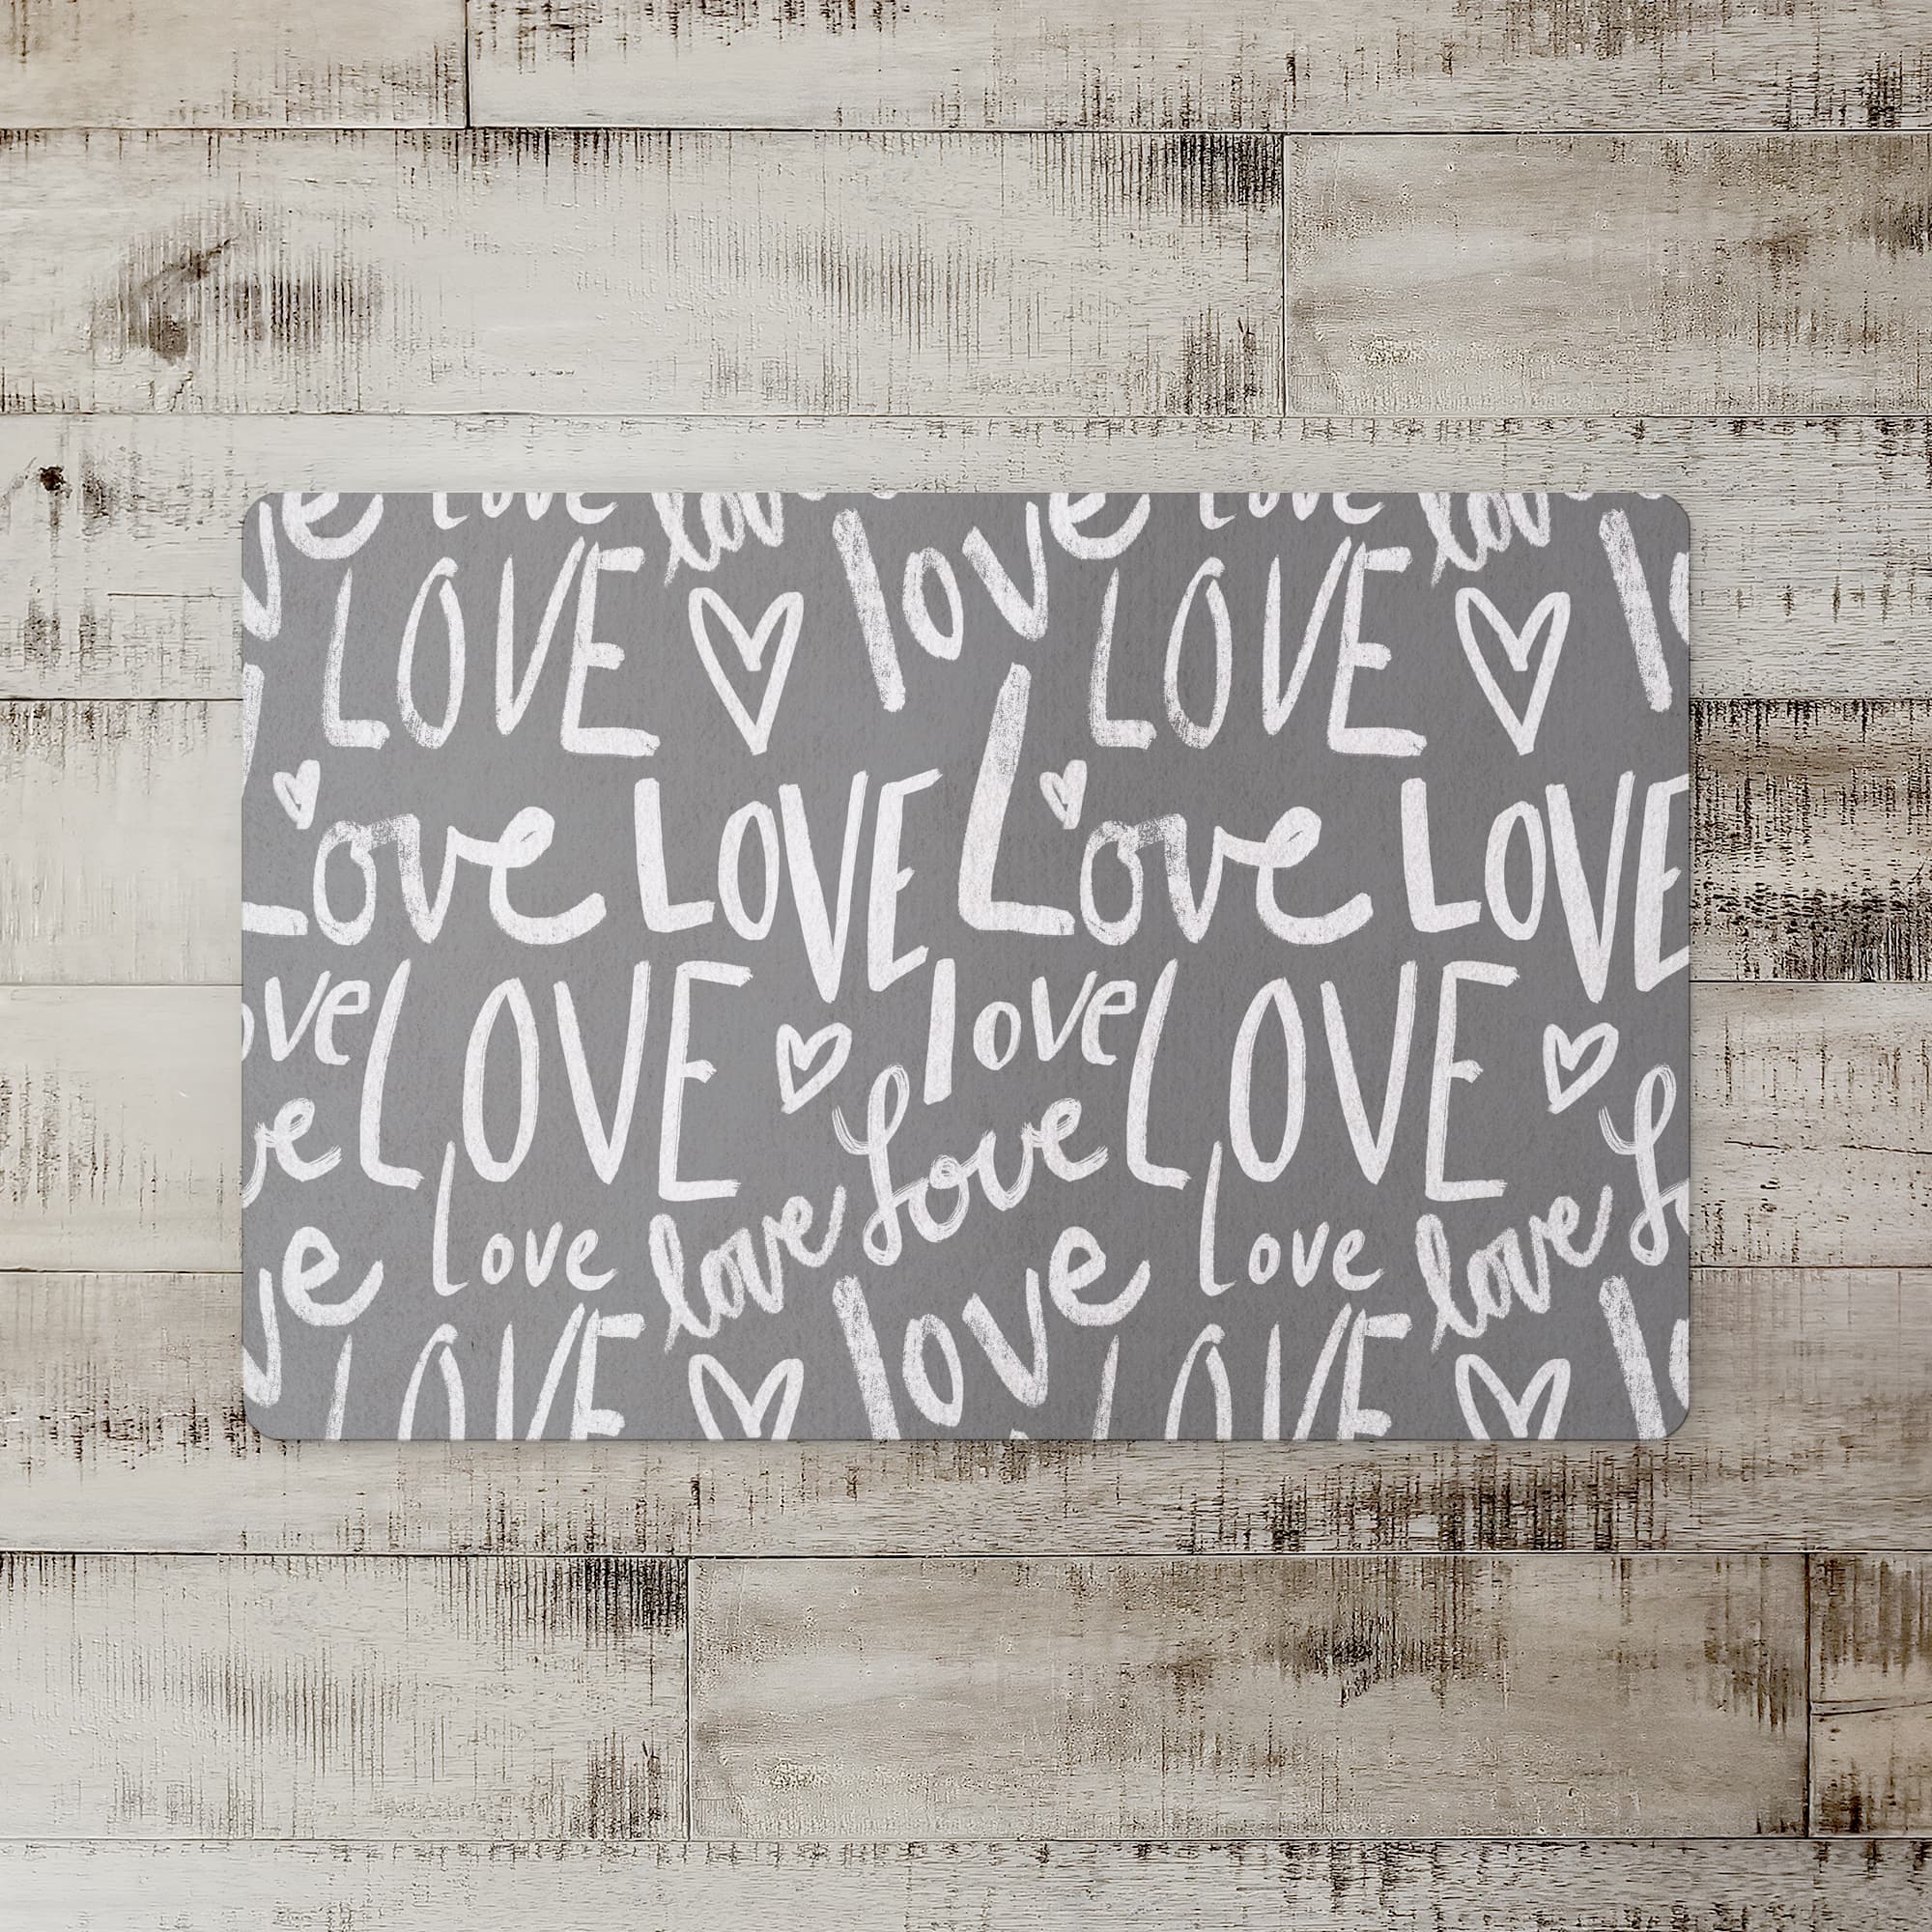 ve Love lov Love lov
LOVE love LOVE lo
Love LOVE Love LOVE
ove LOVE love LOVE
ve Love Lo
ve Love love Love love
LOVE love LOVE lo